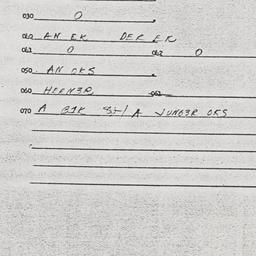 030 0
040 AN EK DER ER
041 0 042 0
050 AN OKS
060 HEENER 061
070 A BIK S-1 A JUNGER OKS